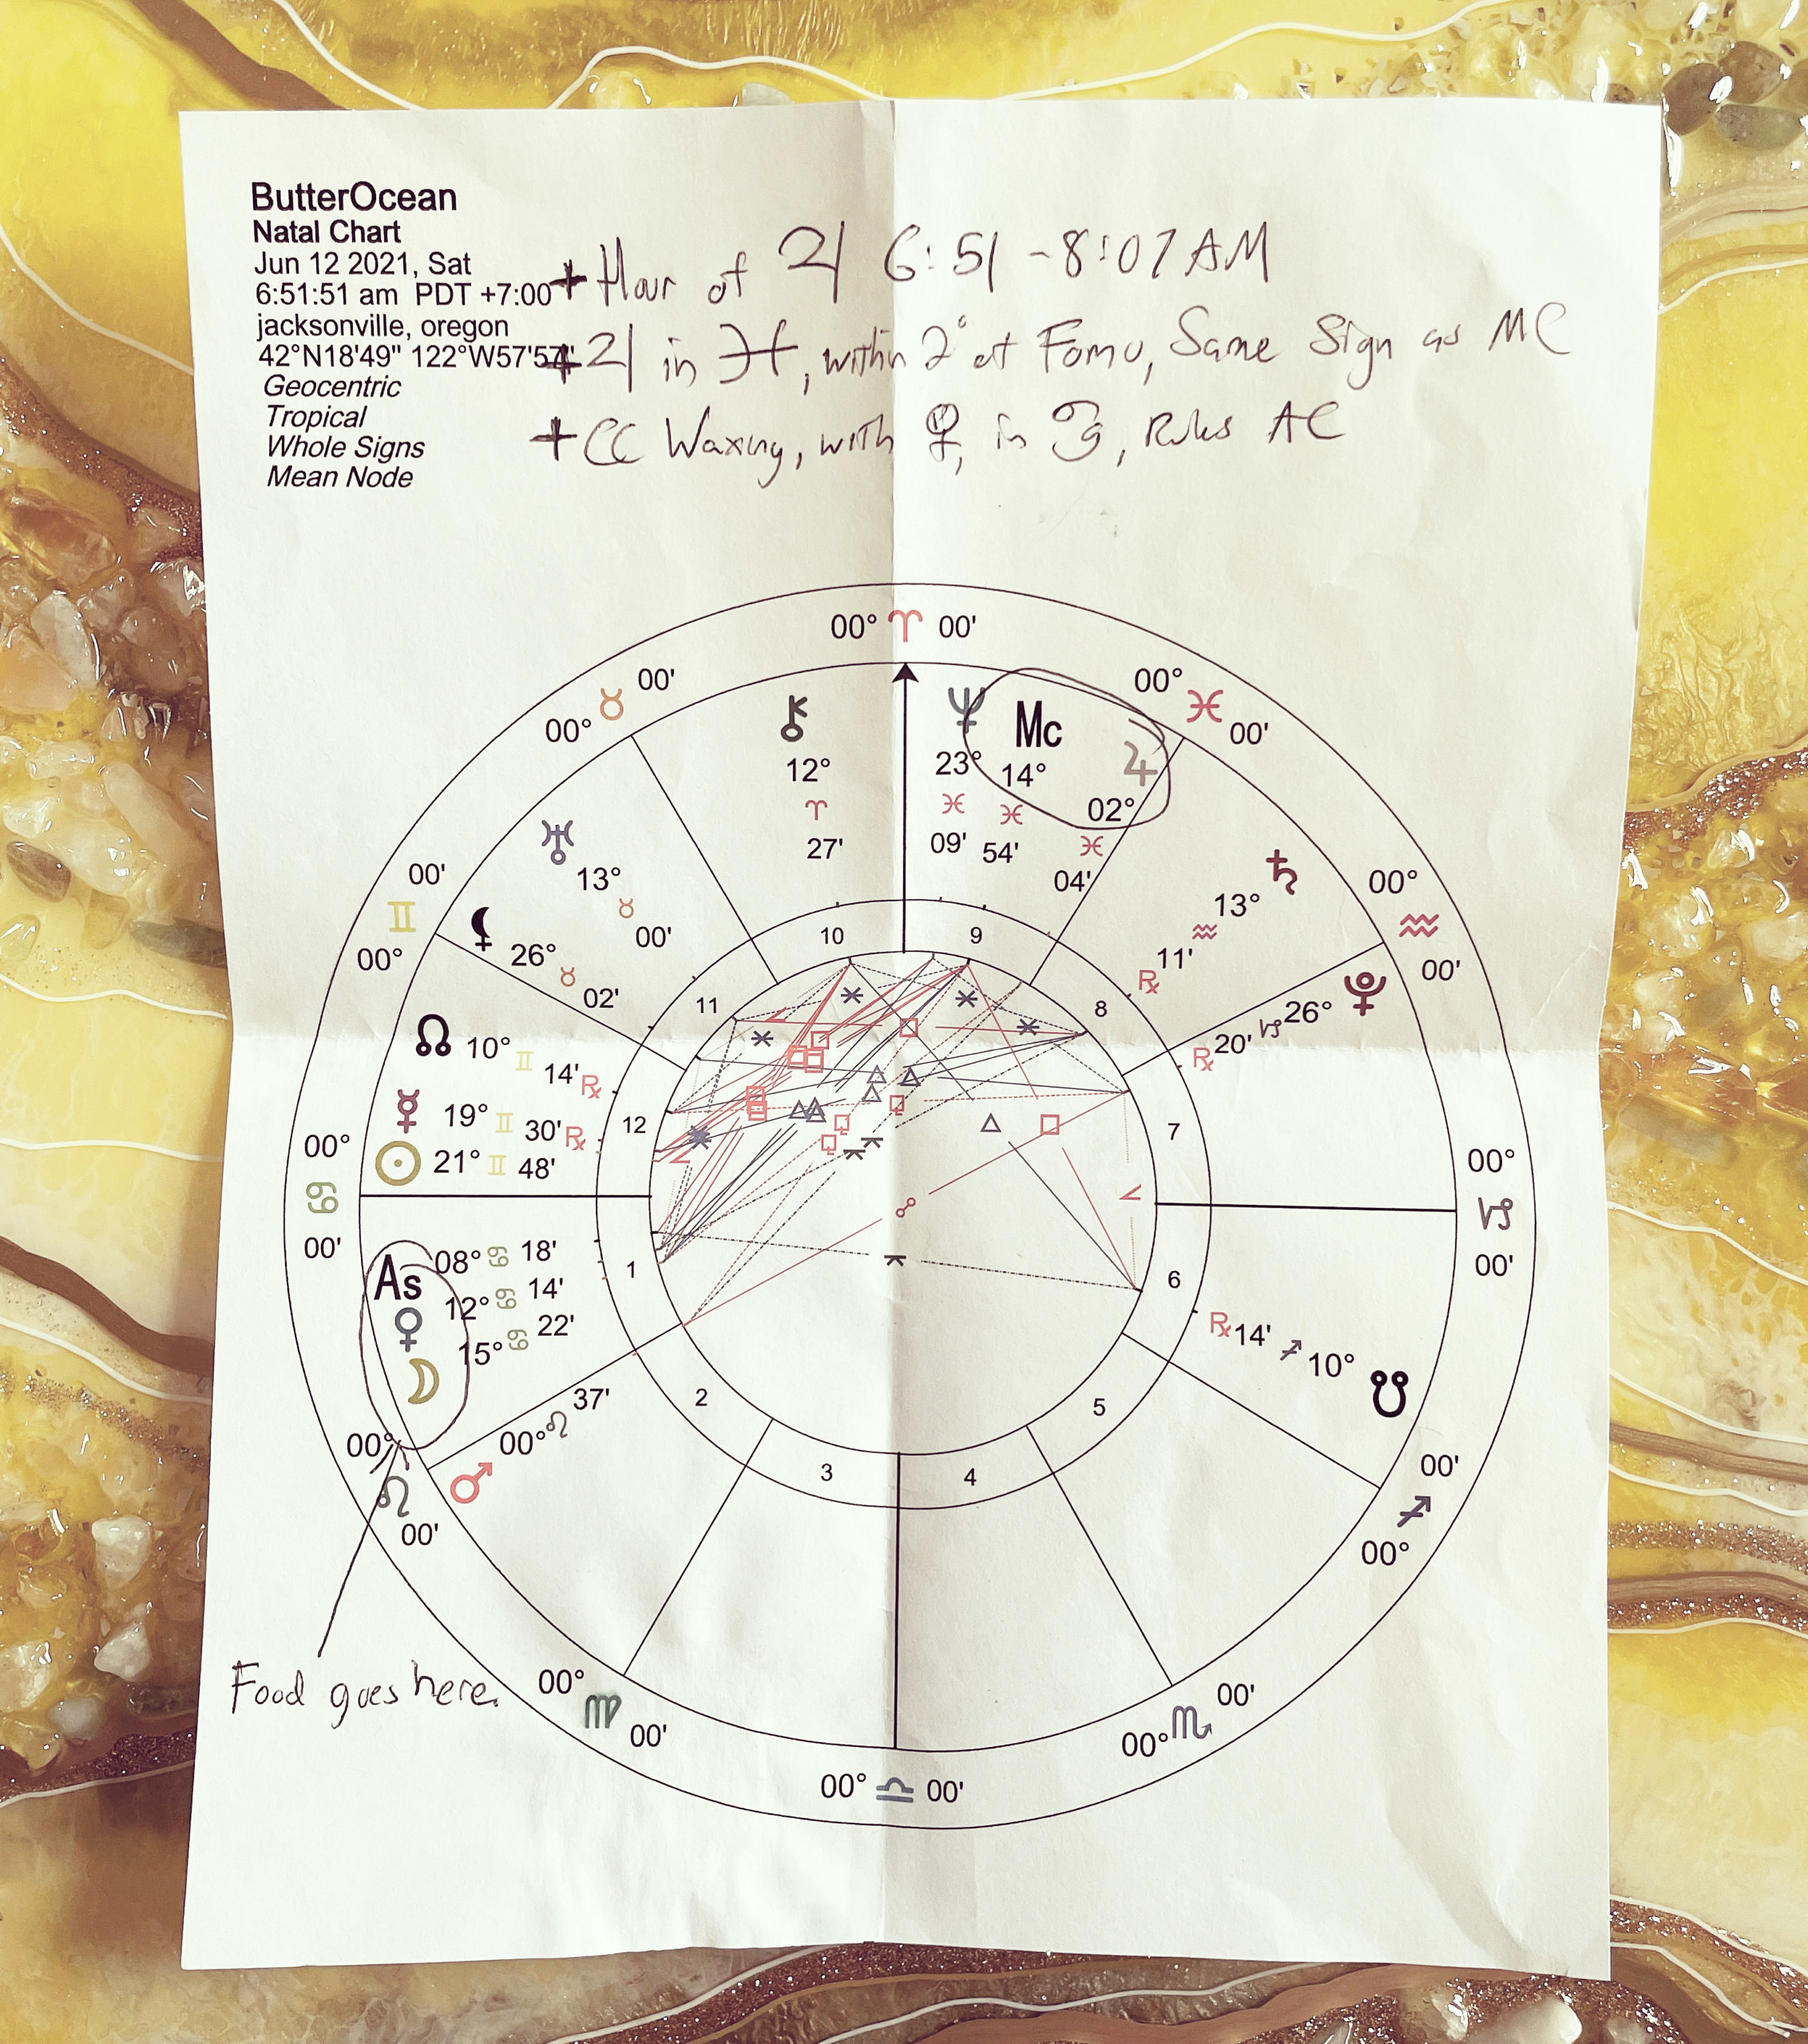 ButterOcean
Natal Chart
Jun 12 2021, Sat
6:51:51 am PDT +7:00
jacksonville, oregon
42°N18'49" 122°W57'57"
Geocentric
Tropical
Whole Signs
Mean Node
+ Hour of ♃ 6:51 - 8:07 AM
+ ♃ in ♓, within 2° of Fomo, Same Sign as MC
+ CC Waxing, with ♀, in ♋, Rules AC
00° ♈ 00'
00° ♉ 00'
00° ♓ 00'
⚷ 12° ♈ 27'
♆ 23° ♓ 09'
Mc 14° ♓ 54'
♃ 02° ♓ 04'
♅ 13° ♉ 00'
♄ 13° ♒ 11' ℞
00° ♊ 00'
00° ♒ 00'
⚸ 26° ♉ 02'
♇ 26° ♑ 20' ℞
☊ 10° ♊ 14' ℞
☿ 19° ♊ 30' ℞
☉ 21° ♊ 48'
10 9
11 8
12 7
1 6
2 5
3 4
00° ♋ 00'
00° ♑ 00'
As 08° ♋ 18'
♀ 12° ♋ 14'
☽ 15° ♋ 22'
℞ 14' ♐ 10° ☋
00° ♌ 00'
♂ 00° ♌ 37'
00° ♐ 00'
Food goes here.
00° ♍ 00'
00° ♏ 00'
00° ♎ 00'